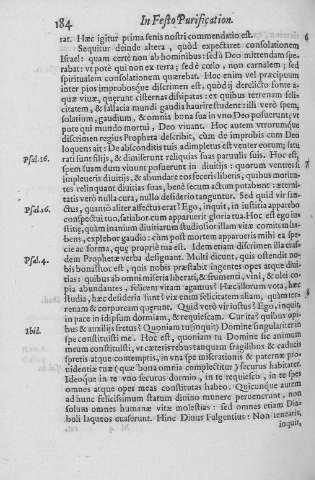 184 In Festo Purification.
rat. Hæc igitur prima senis nostri commendatio est.
Sequitur deinde altera, quòd expectaret consolationem
Israel: quam certè non ab hominibus: sed à Deo mittendam spe-
rabat: vt potè qui non ex terra; sed è cœlo, non carnalem; sed
spiritualem consolationem quærebat. Hoc enim vel præcipuum
inter pios improbosque discrimen est, quòd ij derelicto fonte a-
quæ viuæ, quærunt cisternas dissipatas: ex quibus terrenam feli-
citatem, & fallacia mundi gaudia haurire student: illi verò spem,
solatium, gaudium, & omnia bona sua in vno Deo posuerunt; vt
pote qui mundo mortui, Deo viuant. Hoc autem vtrorumque
discrimen regius Propheta describit, cùm de improbis cum Deo
loquens ait: De absconditis tuis adimpletus est venter eorum; satu
Psal.16. rati sunt filijs, & dimiserunt reliquias suas paruulis suis. Hoc est,
spem suam dum viuunt posuerunt in diuitijs: quorum ventrem
impleueris diuitijs, & abundare eos feceris liberis, quibus morien-
tes relinquant diuitias suas, benè secum actum putabant: æterni-
tatis verò nulla cura, nullo desiderio tanguntur. Sed quid vir san-
Psal 16. ctus, quantò aliter affectus erat? Ego, inquit, in iustitia apparebo
conspectui tuo, satiabor cum apparuerit gloria tua. Hoc est ego ius
stitiæ, quàm inanium diuitiarum studiosior illam vitæ comitem ha-
bens, explebor gaudio: cùm post mortem apparueris mihi ea spe-
cie ac forma, quę proprię tua est. Idem etiam discrimen illa eius-
Psal.4. dem Prophetæ verba designant. Multi dicunt, quis ostendit no-
bis bona: hoc est, quis nobis præstabit ingentes opes atque diui-
tias: quibus ab omni miseria liberati, & frumenti, vini, & olei co-
pia abundantes, felicem vitam agamus? Hæc illorum vota, hæc
studia, hæc desideria sunt: vix enim felicitatem aliam, quàm ter-
renam & corpoream quærunt. Quid verò vir iustus? Ego, inquit,
in pace in idipsum dormiam, & requiescam. Cur ita? quibus opi-
Ibid. bus & auxilijs fretus? Quoniam tu (inquit) Domine singulariter in
spe constituisti me. Hoc est, quoniam tu Domine sic animum
meum constituisti, vt cæteris rebus tanquam fragilibus & caducis
spretis atque contemptis, in vna spe misericordiæ & paternæ pro-
uidentiæ tuæ (quæ bona omnia complectitur) securus habitet.
Ideoque in te vno securus dormio, in te requiesco, in te spes
omnes atque opes meas constitutas habeo. Quicunque autem
ad hunc felicissimum statum diuino munere peruenerunt, non
solum omnes humanæ vitæ molestias: sed omnes etiam Dia-
boli laqueos euaserunt. Hinc Diuus Fulgentius: Non tenearis,
inquit,